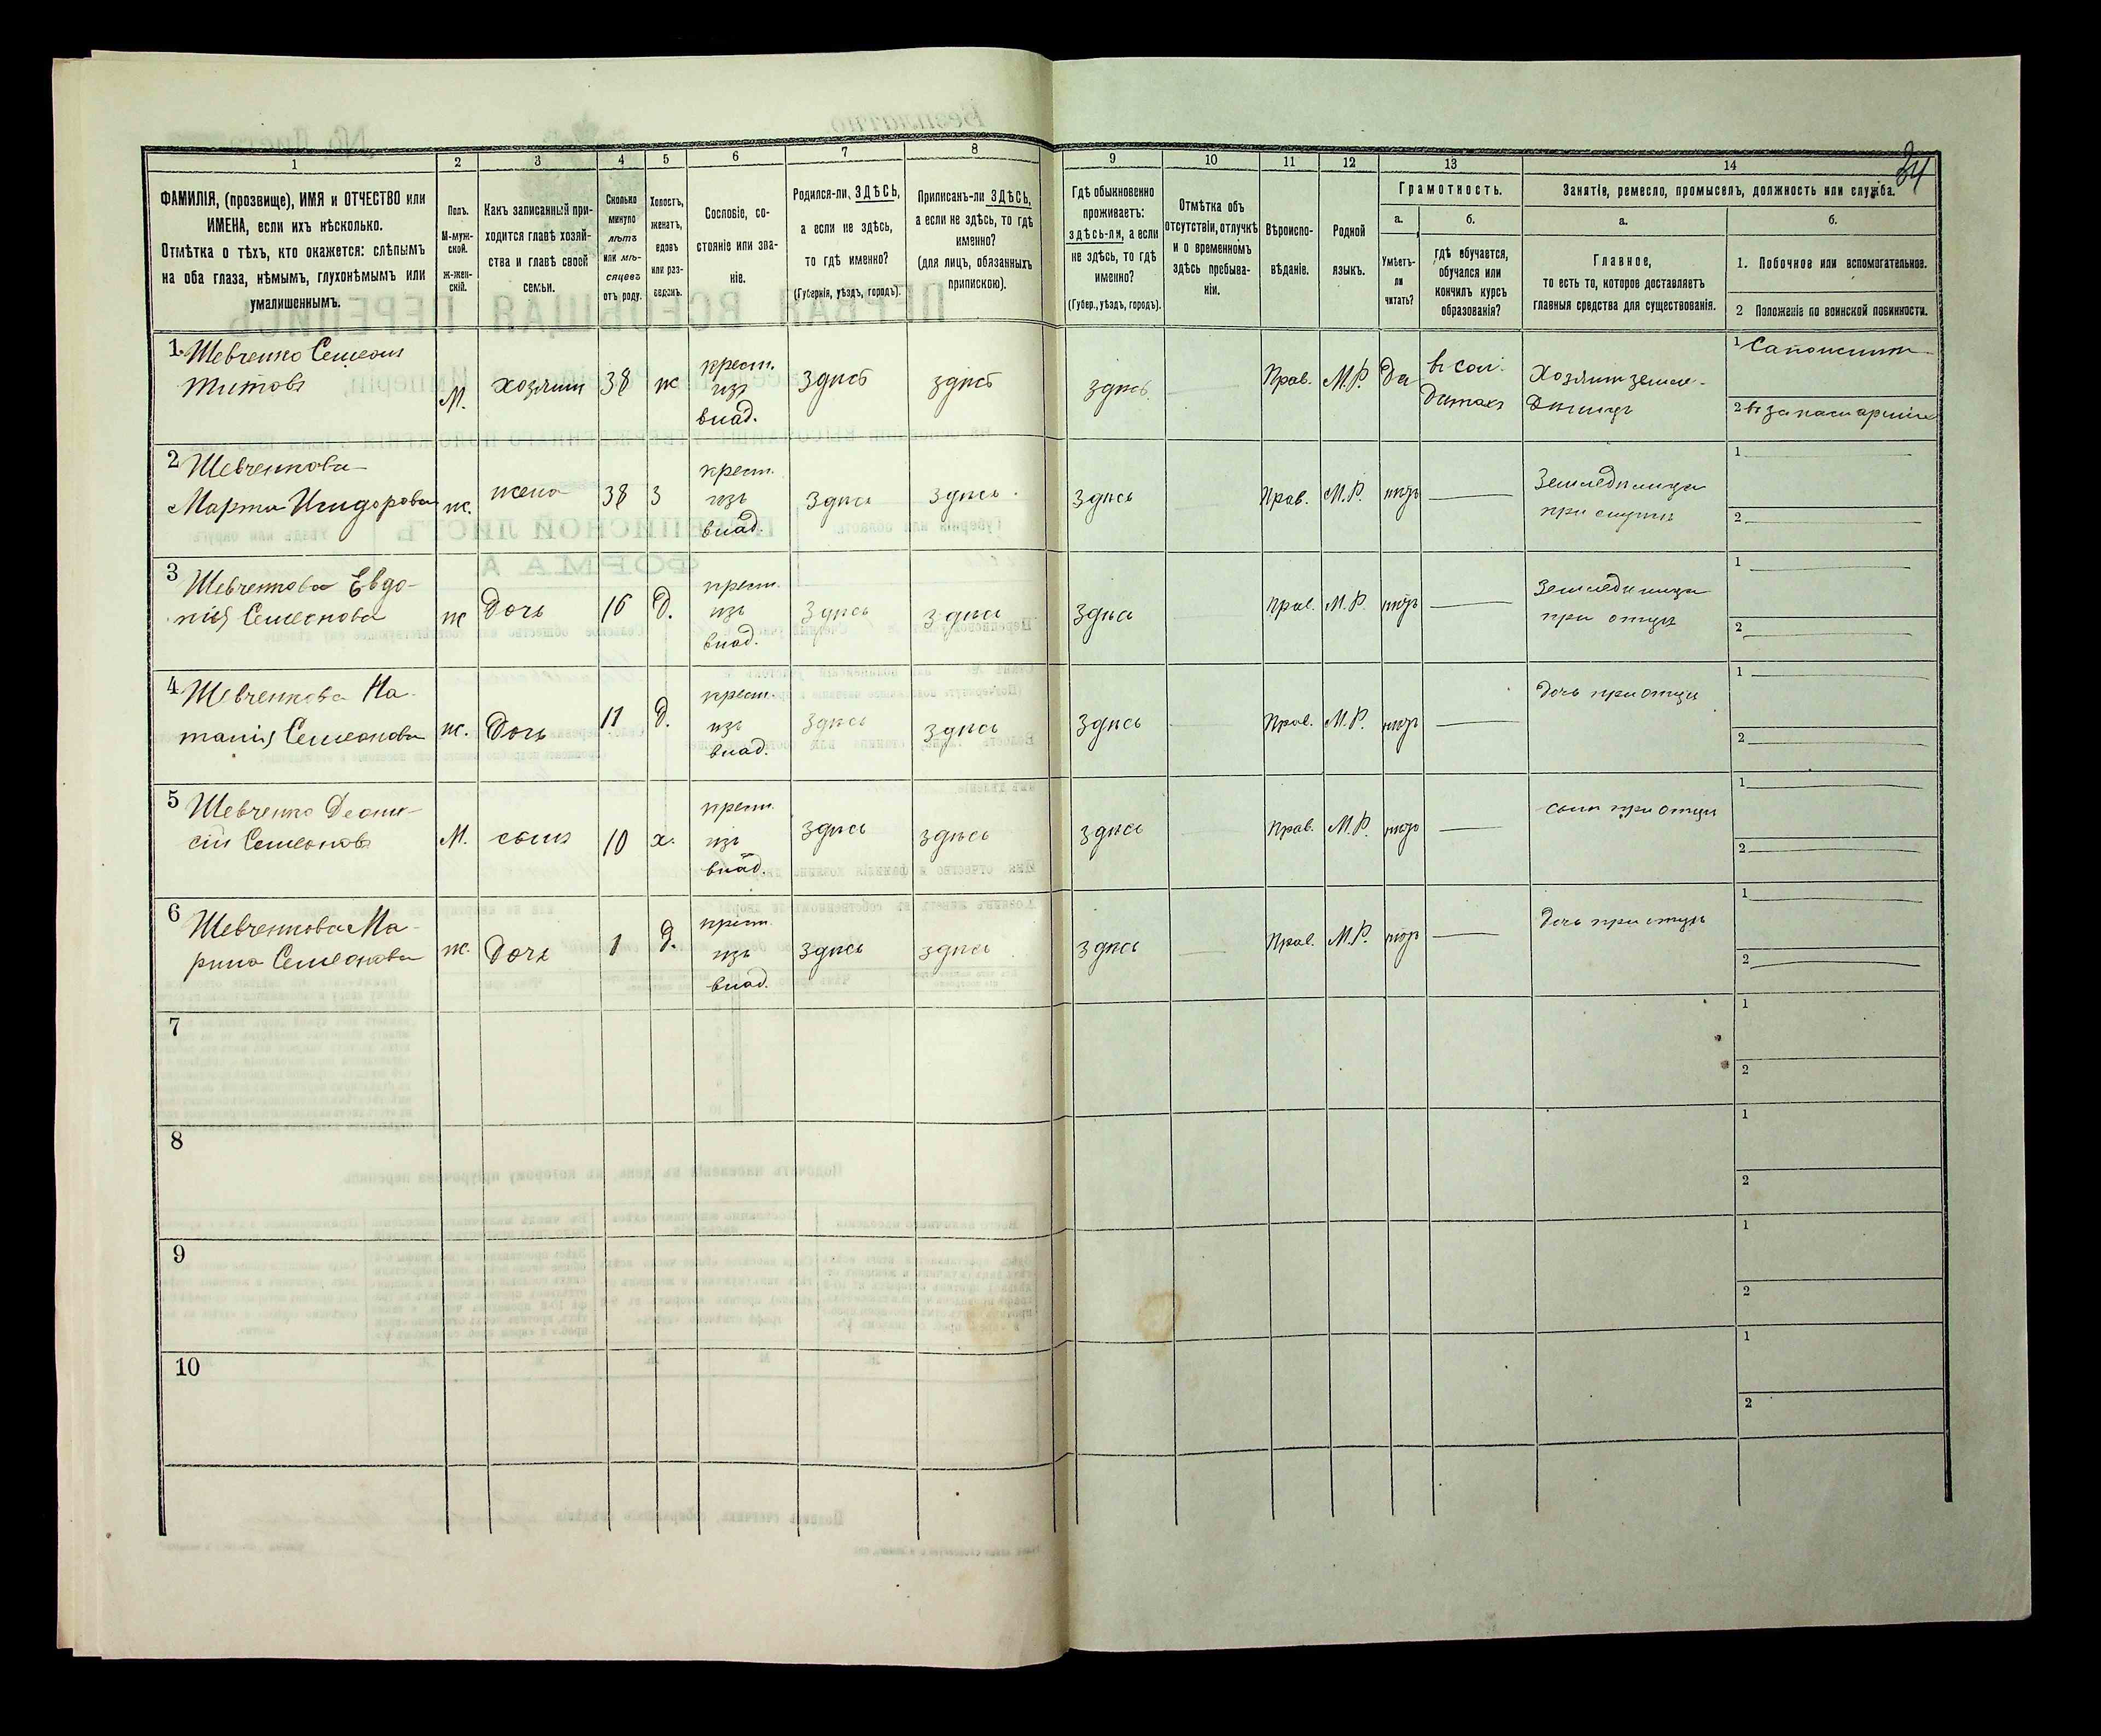 84
1
2
3
4
5
6
7
8
9
10
11
12
13
14
ФАМИЛІЯ, (прозвище), ИМЯ и ОТЧЕСТВО или
ИМЕНА, если ихъ нѣсколько.
Отмѣтка о тѣхъ, кто окажется: слѣпымъ
на оба глаза, нѣмымъ, глухонѣмымъ или
умалишеннымъ.
Полъ.
М-муж-
ской.
ж-жен-
скій.
Какъ записанный при-
ходится главѣ хозяй-
ства и главѣ своей
семьи.
Сколько
минуло
лѣтъ
или мѣ-
сяцевъ
отъ роду.
Холостъ,
женатъ,
вдовъ
или раз-
веденъ.
Сословіе, со-
стояніе или зва-
ніе.
Родился-ли, ЗДѢСЬ,
а если не здѣсь,
то гдѣ именно?
(Губернія, уѣздъ, городъ).
Приписанъ-ли ЗДѢСЬ,
а если не здѣсь, то гдѣ
именно?
(для лицъ, обязанныхъ
припискою).
Гдѣ обыкновенно
проживаетъ:
здѣсь-ли, а если
не здѣсь, то гдѣ
именно?
(Губер., уѣздъ, городъ).
Отмѣтка объ
отсутствіи, отлучкѣ
и о временномъ
здѣсь пребыва-
ніи.
Вѣроиспо-
вѣданіе.
Родной
языкъ.
Грамотность.
а.
Умѣетъ-
ли
читать?
б.
гдѣ обучается,
обучался или
кончилъ курсъ
образованія?
Занятіе, ремесло, промыселъ, должность или служба.
а.
Главное,
то есть то, которое доставляетъ
главныя средства для существованія.
б.
1. Побочное или вспомогательное.
2 Положеніе по воинской повинности.
1. Шевченко Семеонъ
Титовъ
М.
хозяинъ
38
ж
крест.
изъ
влад.
здѣсь
здѣсь
здѣсь
Прав.
М.Р.
Да
въ сол-
датахъ
Хозяинъ земле-
дѣлецъ
1
2 въ запасѣ арміи
2 Шевченкова
Марта Исидорова
ж.
жена
38
З
крест.
изъ
влад.
здѣсь
здѣсь
здѣсь
Прав.
М.Р.
нѣтъ
Земледѣлица
1
2
3 Шевченкова Евдо-
кія Семеонова
ж
Дочь
16
Д.
крест.
изъ
влад.
здѣсь
здѣсь
здѣсь
Прав.
М.Р.
нѣтъ
Земледѣлица
при отцѣ
1
2
4 Шевченкова На-
талія Семеонова
ж.
Дочь
11
Д.
крест.
изъ
влад.
здѣсь
здѣсь
здѣсь
Прав.
М.Р.
нѣтъ
Дочь при отцѣ
1
2
5 Шевченко Деони-
сій Семеоновъ
М.
сынъ
10
х.
крест.
изъ
влад.
здѣсь
здѣсь
здѣсь
Прав.
М.Р.
нѣтъ
сынъ при отцѣ
1
2
6 Шевченкова Ма-
рина Семеонова
ж.
Дочь
1
Д.
крест.
изъ
влад.
здѣсь
здѣсь
здѣсь
Прав.
М.Р.
нѣтъ
Дочь при отцѣ
1
2
7
1
2
8
1
2
9
1
2
10
1
2